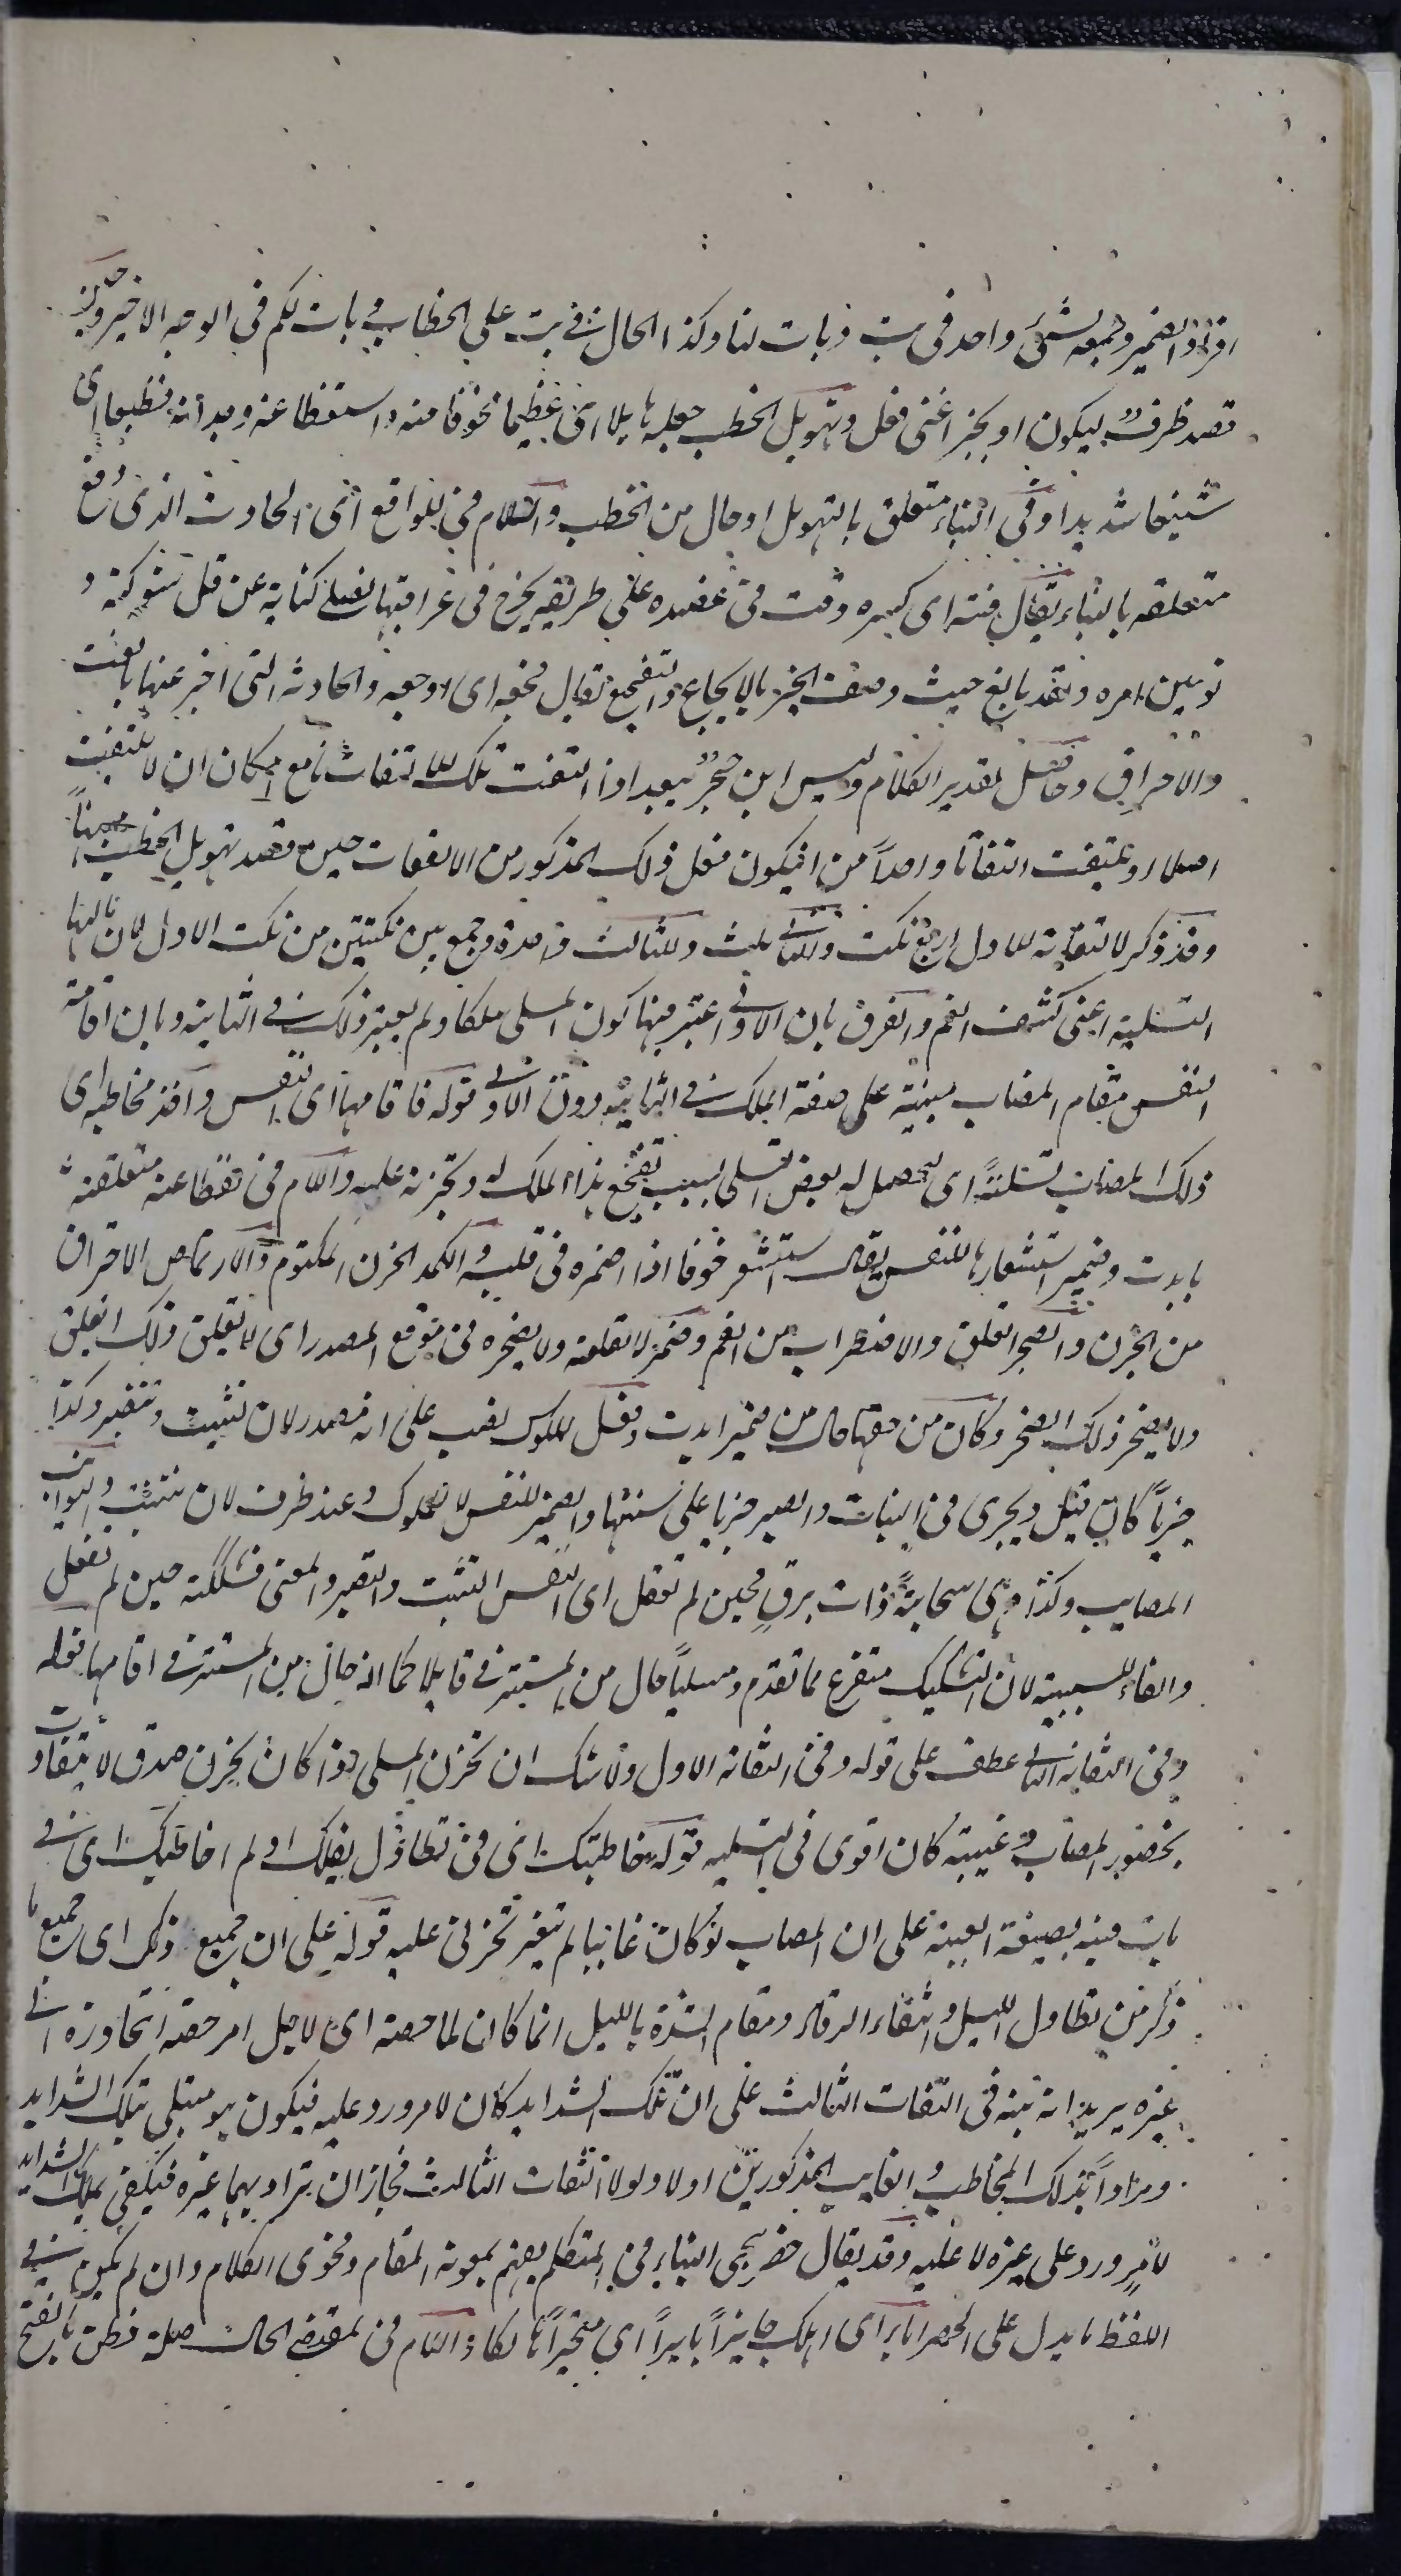 افراد الضمير وجمعه لشئ واحد فى بت وبات لنا وكذا الحال فى بت على الخطاب وبات لكم فى الوجه الاخير وحين
قصد ظرف ليكون او بخبر اعنى فعل وتهويل الخطب جعله هايلا اى عظيما مخوفا منه واستفظاعه وجدانه فظيعا اى
شنيعا شديدا وفى النباء متعلق بالتهويل او حال من الخطب واللام فى للواقع اى الحادث الذى وقع
متعلقه بالنباء يقال فته اى كسره وفت فى عضده على طريقه يجرح فى عراقيبها نصلى كناية عن فل شوكته و
توهين امره ولقد بالغ حيث وصف الخبر بالايجاع والتفجيع يقال فجعه اى اوجعه والحادثه التى اخبر عنها بالفت
والاحراق وحاصل تقدير الكلام وليس ابن حجر ببعيد اذا التفت تلك الالتفاتات مع امكان ان لا يلتفت
اصلا او يلتفت التفاتا واحدا من ان يكون فعل ذلك المذكور من الالتفات حين قصد تهويل الخطب
وقد ذكر لالتفاته الاول اربع نكت وللثانى ثلث وللثالث واحدة وجمع بين نكتتين من نكت الاول لان مالهما
التسلية اعنى كشف الغم والفرق بان الاولى اعتبر فيها كون المسلى ملكا ولم يعتبر ذلك فى الثانية وبان اقامة
النفس مقام المصاب مبنية على صفة الملك فى الثانية دون الاولى قوله فاقامها اى النفس واخذ مخاطبه اى
ذلك المصاب تسلية اى ليحصل له بعض التسلى بسبب تفجع هذا الملك له وتحزنه عليه واللام فى تفظاعه متعلقه
بابدت وضمير استشعارها للنفس يقال استشعر خوفا اذا اضمره فى قلبه والكمد الحزن المكتوم والارتماض الاحتراق
من الحزن والضجر القلق والاضطراب من الغم وضمير لا تقلقه ولا يضجره فى موقع المصدر اى لا يقلق ذلك القلق
ولا يضجر ذلك الضجر وكان من حقها حال من ضمير ابدت وفعل الملوك نصب على انه مصدر لان تثبت وتتصبر وكذا
جريا كانه قيل ويجرى فى الثبات والصبر جريا على سنتها والضمير للنفس لا للملوك وعند ظرف لان تثبت والنوائب
المصايب وكذا هى اى سحابة ذات برق فحين لم تفعل اى النفس التثبت والتصبر والمعنى فشككته حين لم تفعل
والفاء للسببية لان التشكيك متفرع مما تقدم ومسليا حال من المستتر فى قايلا كما انه حال من المستتر فى اقامها قوله
وفى التفاته الثانى عطف على قوله وفى التفاته الاول ولا شك ان تحزن المسلى اذا كان تحزن صدق لا يتفاوت
بحضور المصاب وغيبته كان اقوى فى التسليه قوله خاطبتك اى فى تطاول ليلك او لم اخاطبك اى فى
بات فيه بصيغة الغيبة على ان المصاب لو كان غائبا لم يتغير تحزنى عليه قوله على ان جميع ذلك اى جميع ما
ذكر من تطاول الليل وانتفاء الرقاد ومقام الشدة بالليل انما كان لما خصه اى لاجل امر خصه لم تجاوزه الى
غيره يريد انه نبه فى التفات الثالث على ان تلك الشدايد كان لامر ورد عليه فيكون هو مبتلى بتلك الشدايد
ومرادا بذلك المخاطب والغايب المذكورين اولا ولولا التفات الثالث لجاز ان يراد بهما غيره فيكون تلك الشدايد
لامر ورد على غيره لا عليه وقد يقال حصر مجى النباء فى المتكلم يفهم بمعونة المقام وفحوى الكلام وان لم يكن فى
اللفظ ما يدل على الحصر ابار اى اهلك حايرا بايرا اى متحيرا هالكا واللام فى لمقتضى الحال صلة فطن بالفتح